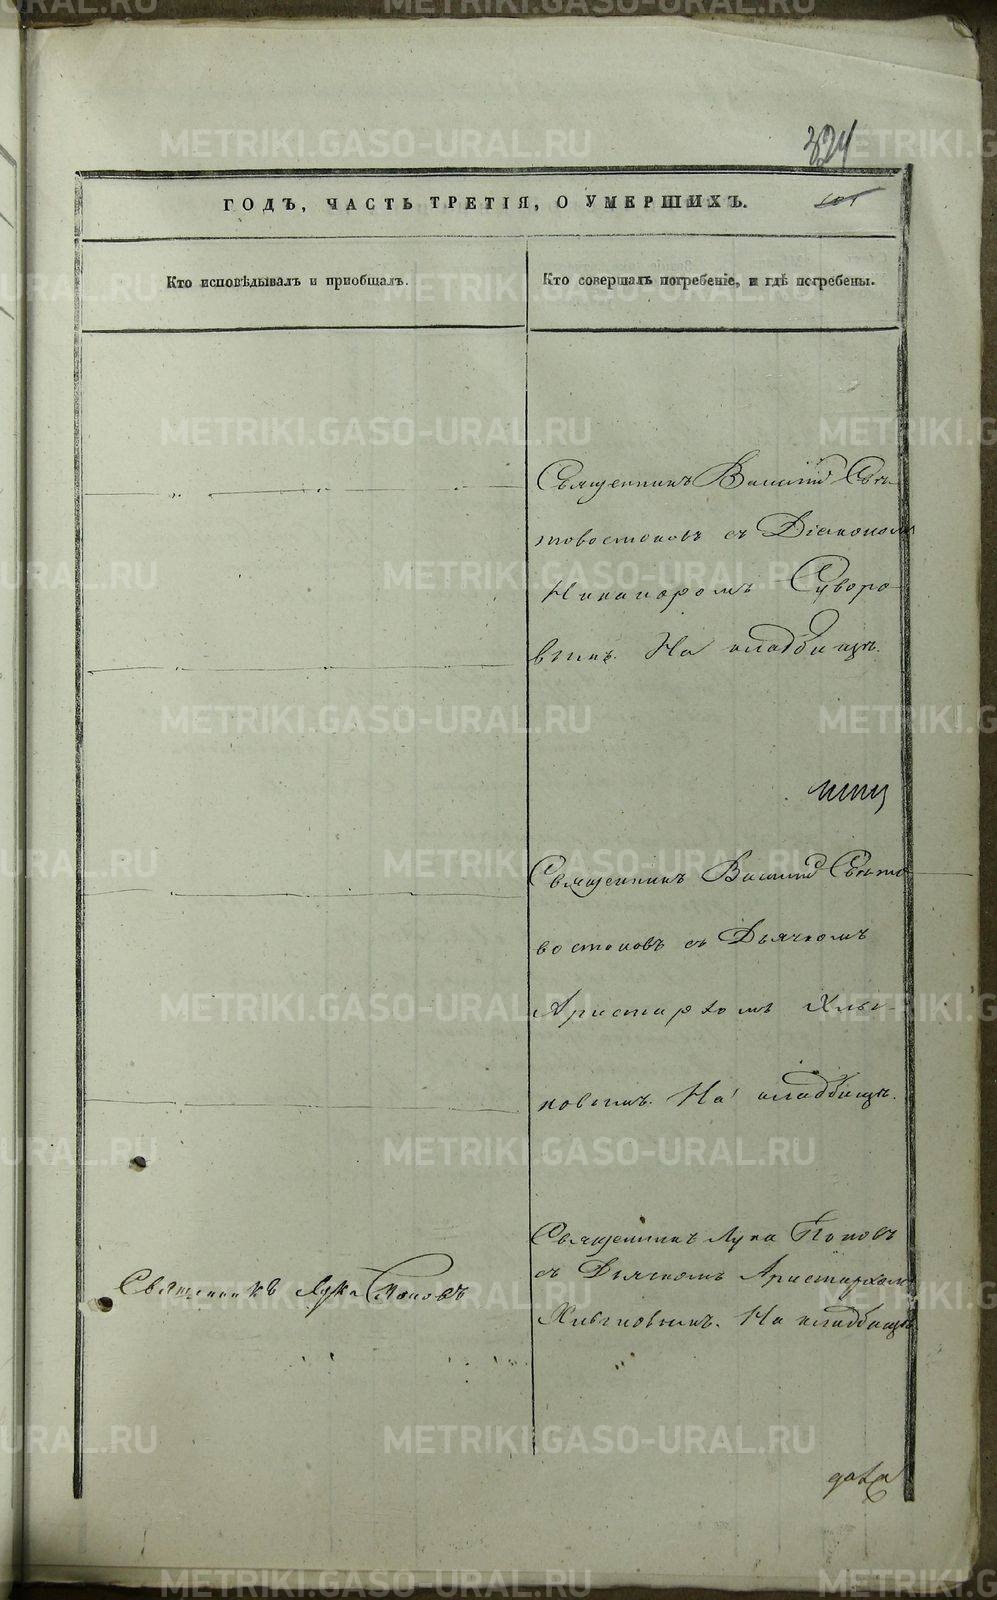 324
101
ГОДЪ, ЧАСТЬ ТРЕТІЯ, О УМЕРШИХЪ.
Кто исповѣдывалъ и приобщалъ.
Кто совершалъ погребеніе, и гдѣ погребены.
Священникъ Василій Свѣ-
товостоковъ съ Діакономъ
Никаноромъ Суворо-
вымъ. На кладбищѣ.
Священникъ Василій Свѣто
востоковъ съ Дьячкомъ
Аристархомъ Хлы-
новымъ. На кладбищѣ.
Священникъ Лука Поповъ
Священникъ Лука Поповъ
съ Дьячкомъ Аристархомъ
Хлыновымъ. На кладбищѣ.
METRIKI.GASO-URAL.RU